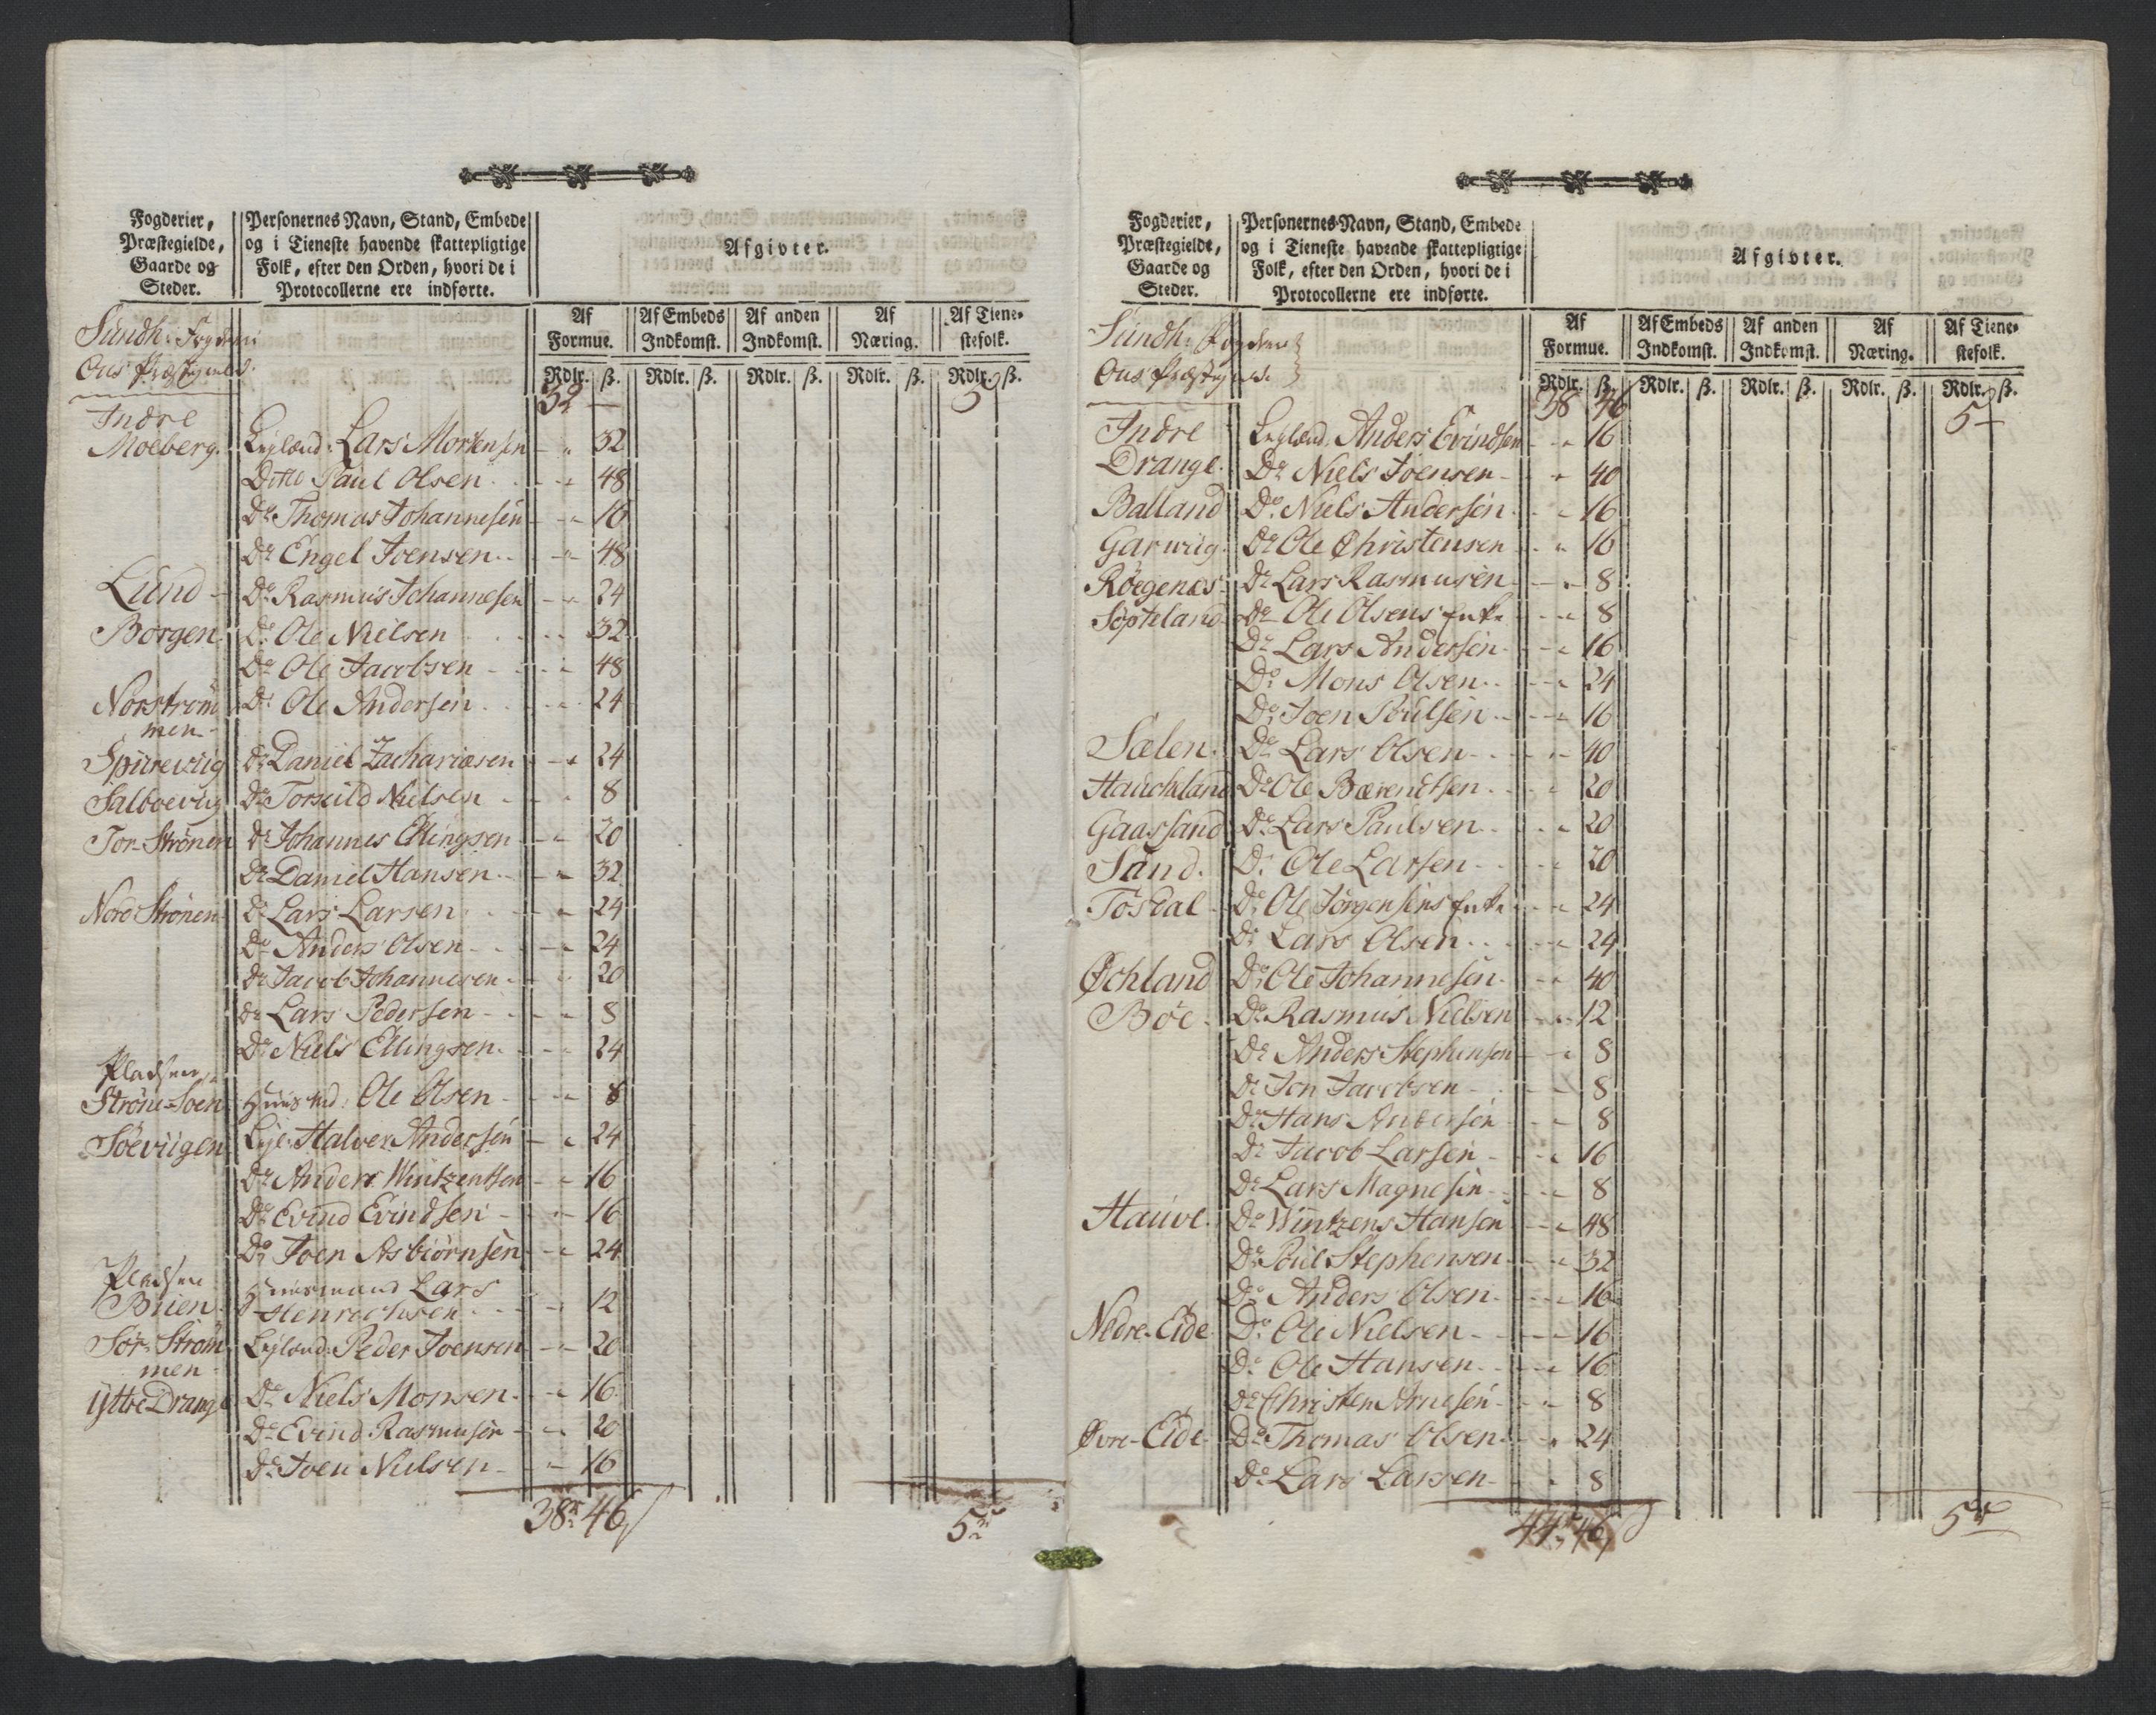 Fogderier,
Præstegielde,
Gaarde og
Steder.
Personernes Navn, Stand, Embede
og i Tieneste havende skattepligtige
Folk, efter den Orden, hvori de i
Protocollerne ere indførte.
Afgivter.
Af Formue. Af Embeds Indkomst. Af anden Indkomst. Af Næring. Af Tiene-stefolk.
Rdlr. ß. Rdlr. ß. Rdlr. ß. Rdlr. ß. Rdlr. ß.
Sundh: Fogderi
Ous Præstegield.
32 — 5
Indre
Moeberg. Leylænd: Lars Mortensen - " 32
Ditto Paul Olsen - " 48
Do Thomas Johannesen - " 16
Do Engel Joensen - " 48
Lund - Do Rasmus Johannesen - " 24
Borgen Do Ole Nielsen - " 32
Do Ole Jacobsen - " 48
Norstrøm Do Ole Andersen - " 24
men -
Spurevug Do Daniel Zachariæsen - " 24
Salboevug Do Torkild Nielsen - " 8
Tor-Strønen Do Johannes Ellingsen - " 20
Do Daniel Hansen - " 32
Nord Strønen Do Lars Larsen - " 24
Do Anders Olsen - " 24
Do Jacob Johannesen - " 20
Do Lars Pedersen - " 8
Do Niels Ellingsen - " 24
Pladsen
Strøne-Soen Huusmd: Ole Olsen - " 8
Søeviigen Leje: Halver Andersen - " 24
Do Anders Wintzentsen - " 16
Do Evind Evindsen - " 16
Do Joen Asbiørnsen - " 24
Pladsen Huusmand Lars
Bruen Henrichsen - " 12
Sør-Strøm Leylænd: Peder Joensen - " 20
men -
Yttre Drange Do Niels Monsen - " 16
Do Evind Rasmusen - " 20
Do Joen Nielsen - " 16
38 46 5
Fogderier,
Præstegielde,
Gaarde og
Steder.
Personernes Navn, Stand, Embede
og i Tieneste havende skattepligtige
Folk, efter den Orden, hvori de i
Protocollerne ere indførte.
Afgivter.
Af Formue. Af Embeds Indkomst. Af anden Indkomst. Af Næring. Af Tiene-stefolk.
Rdlr. ß. Rdlr. ß. Rdlr. ß. Rdlr. ß. Rdlr. ß.
Sundh: Fogderie
Ous Præstegield.
38 46 5 —
Indre Leylænd: Anders Evindsen - " 16
Drange. Do Niels Joensen - " 40
Balland Do Niels Andersen - " 16
Garwiig Do Ole Christensen - " 16
Røegenæs Do Lars Rasmusen - " 8
Søpteland Do Ole Olsens Enke - " 8
Do Lars Andersen - " 16
Do Mons Olsen - " 24
Do Joen Poulsen - " 16
Sælen. Do Lars Olsen - " 40
Hauchland Do Ole Bærentsen - " 20
Gaassand Do Lars Paulsen - " 20
Sand. Do Ole Larsen - " 20
Tøsdal Do Ole Jørgensens Enke - " 24
Do Lars Olsen - " 24
Øchland Do Ole Johannesen - " 40
Bøe. Do Rasmus Nielsen - " 12
Do Anders Stephensen - " 8
Do Jon Jacobsen - " 8
Do Hans Andersen - " 8
Do Jacob Larsen - " 16
Do Lars Magnesen - " 8
Hauve. Do Wintzens Hansen - " 48
Do Poul Stephensen - " 32
Do Anders Olsen - " 16
Nedre-Eide Do Ole Nielsen - " 16
Do Ole Hansen - " 16
Do Christen Arnesen - " 8
Øvre-Eide Do Thomas Olsen - " 24
Do Lars Larsen - " 8
44 46 5